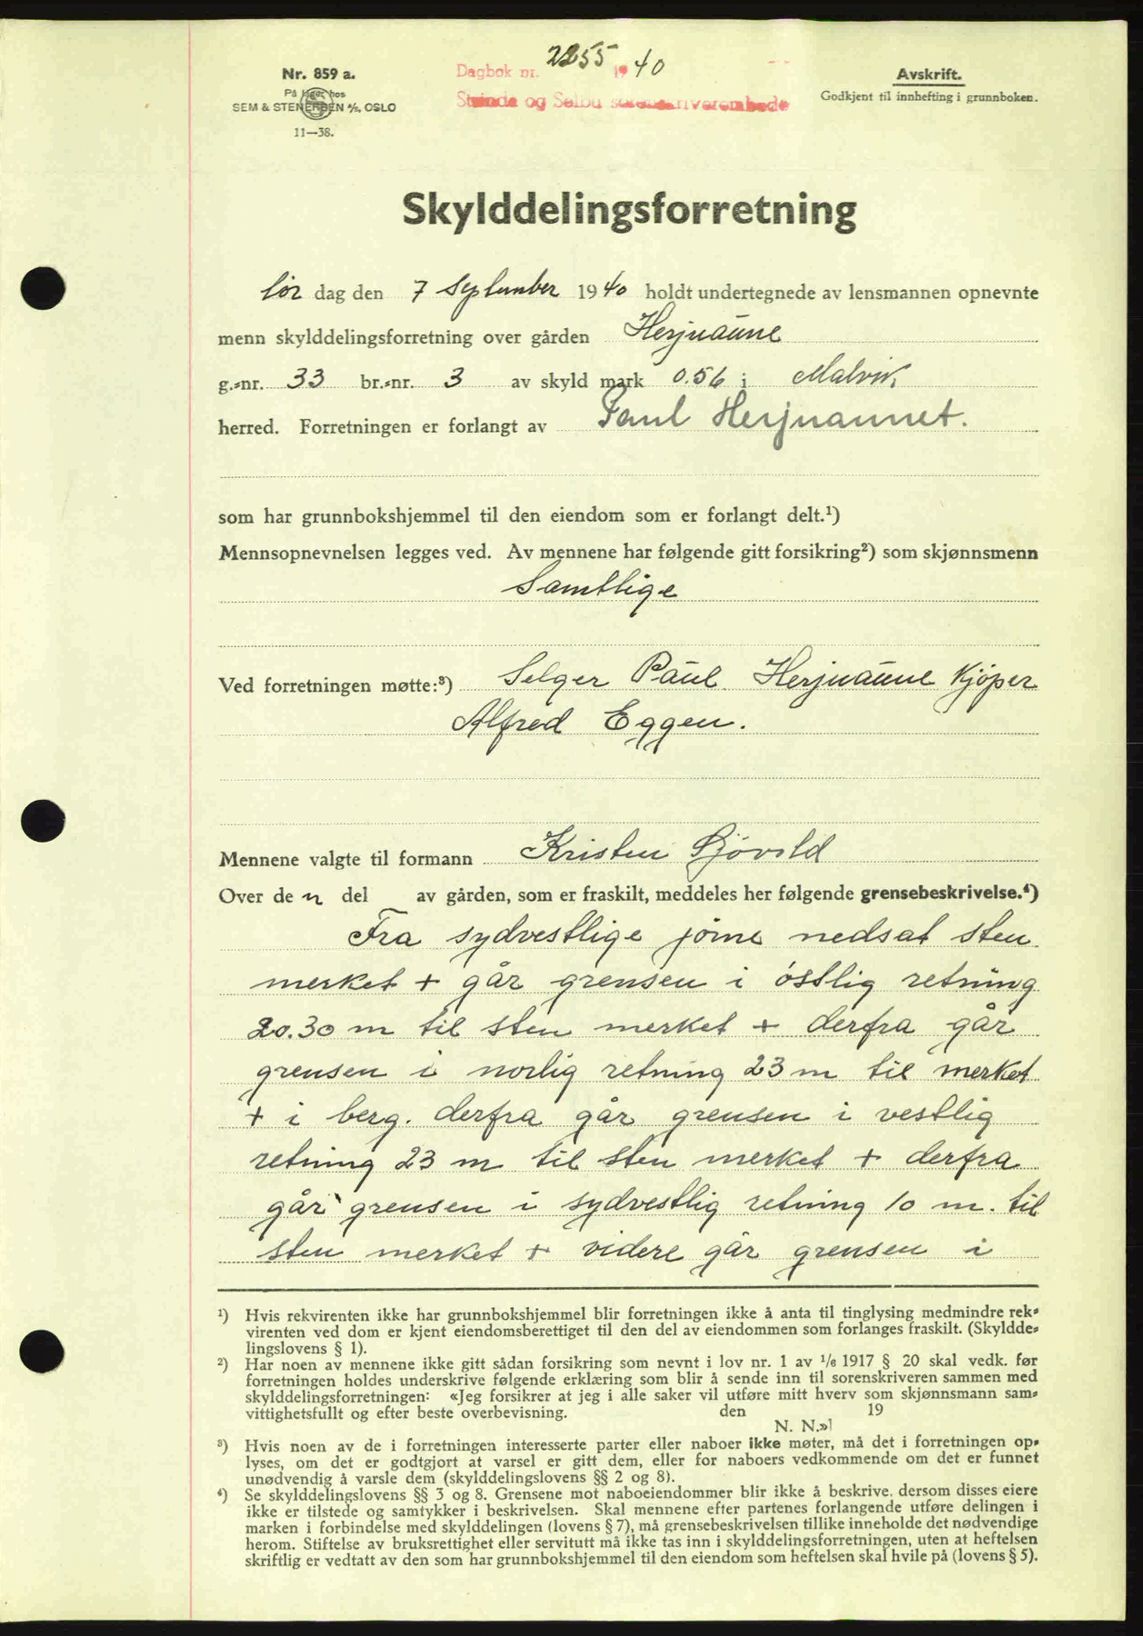 Nr. 859 a.
På lager hos
SEM & STENERSEN A/S, OSLO
11—38.
Dagbok nr. 2255 1940
Strinda og Selbu sorenskriverembede
Avskrift.
Godkjent til innhefting i grunnboken.
Skylddelingsforretning
Lør dag den 7 September 1940 holdt undertegnede av lensmannen opnevnte
menn skylddelingsforretning over gården Herjuaune
g.-nr. 33 br.-nr. 3 av skyld mark 0.56 i Malvik
herred. Forretningen er forlangt av Paul Herjuaunet.
som har grunnbokshjemmel til den eiendom som er forlangt delt.¹)
Mennsopnevnelsen legges ved. Av mennene har følgende gitt forsikring²) som skjønnsmenn
Samtlige
Ved forretningen møtte:³) Selger Paul Herjuaune Kjøper
Alfred Eggen.
Mennene valgte til formann Kristen Sjövold
Over de n del av gården, som er fraskilt, meddeles her følgende grensebeskrivelse.⁴)
Fra sydvestlige jörne nedsat sten
merket + går grensen i östlig retning
20.30 m til sten merket + derfra går
grensen i norlig retning 23 m til merket
+ i berg. derfra går grensen i vestlig
retning 23 m til sten merket + derfra
går grensen i sydvestlig retning 10 m. til
sten merket + videre går grensen i
¹) Hvis rekvirenten ikke har grunnbokshjemmel blir forretningen ikke å anta til tinglysing medmindre rek-
virenten ved dom er kjent eiendomsberettiget til den del av eiendommen som forlanges fraskilt. (Skyldde-
lingslovens § 1).
²) Har noen av mennene ikke gitt sådan forsikring som nevnt i lov nr. 1 av 1/6 1917 § 20 skal vedk. før
forretningen holdes underskrive følgende erklæring som blir å sende inn til sorenskriveren sammen med
skylddelingsforretningen: «Jeg forsikrer at jeg i alle saker vil utføre mitt hverv som skjønnsmann sam-
vittighetsfullt og efter beste overbevisning. den 19
N. N.»
³) Hvis noen av de i forretningen interesserte parter eller naboer ikke møter, må det i forretningen op-
lyses, om det er godtgjort at varsel er gitt dem, eller for naboers vedkommende om det er funnet
unødvendig å varsle dem (skylddelingslovens §§ 2 og 8).
⁴) Se skylddelingslovens §§ 3 og 8. Grensene mot naboeiendommer blir ikke å beskrive, dersom disses eiere
ikke er tilstede og samtykker i beskrivelsen. Skal mennene efter partenes forlangende utføre delingen i
marken i forbindelse med skylddelingen (lovens § 7), må grensebeskrivelsen tillike inneholde det nødvendige
herom. Stiftelse av bruksrettighet eller servitutt må ikke tas inn i skylddelingsforretningen, uten at heftelsen
skriftlig er vedtatt av den som har grunnbokshjemmel til den eiendom som heftelsen skal hvile på (lovens § 5).